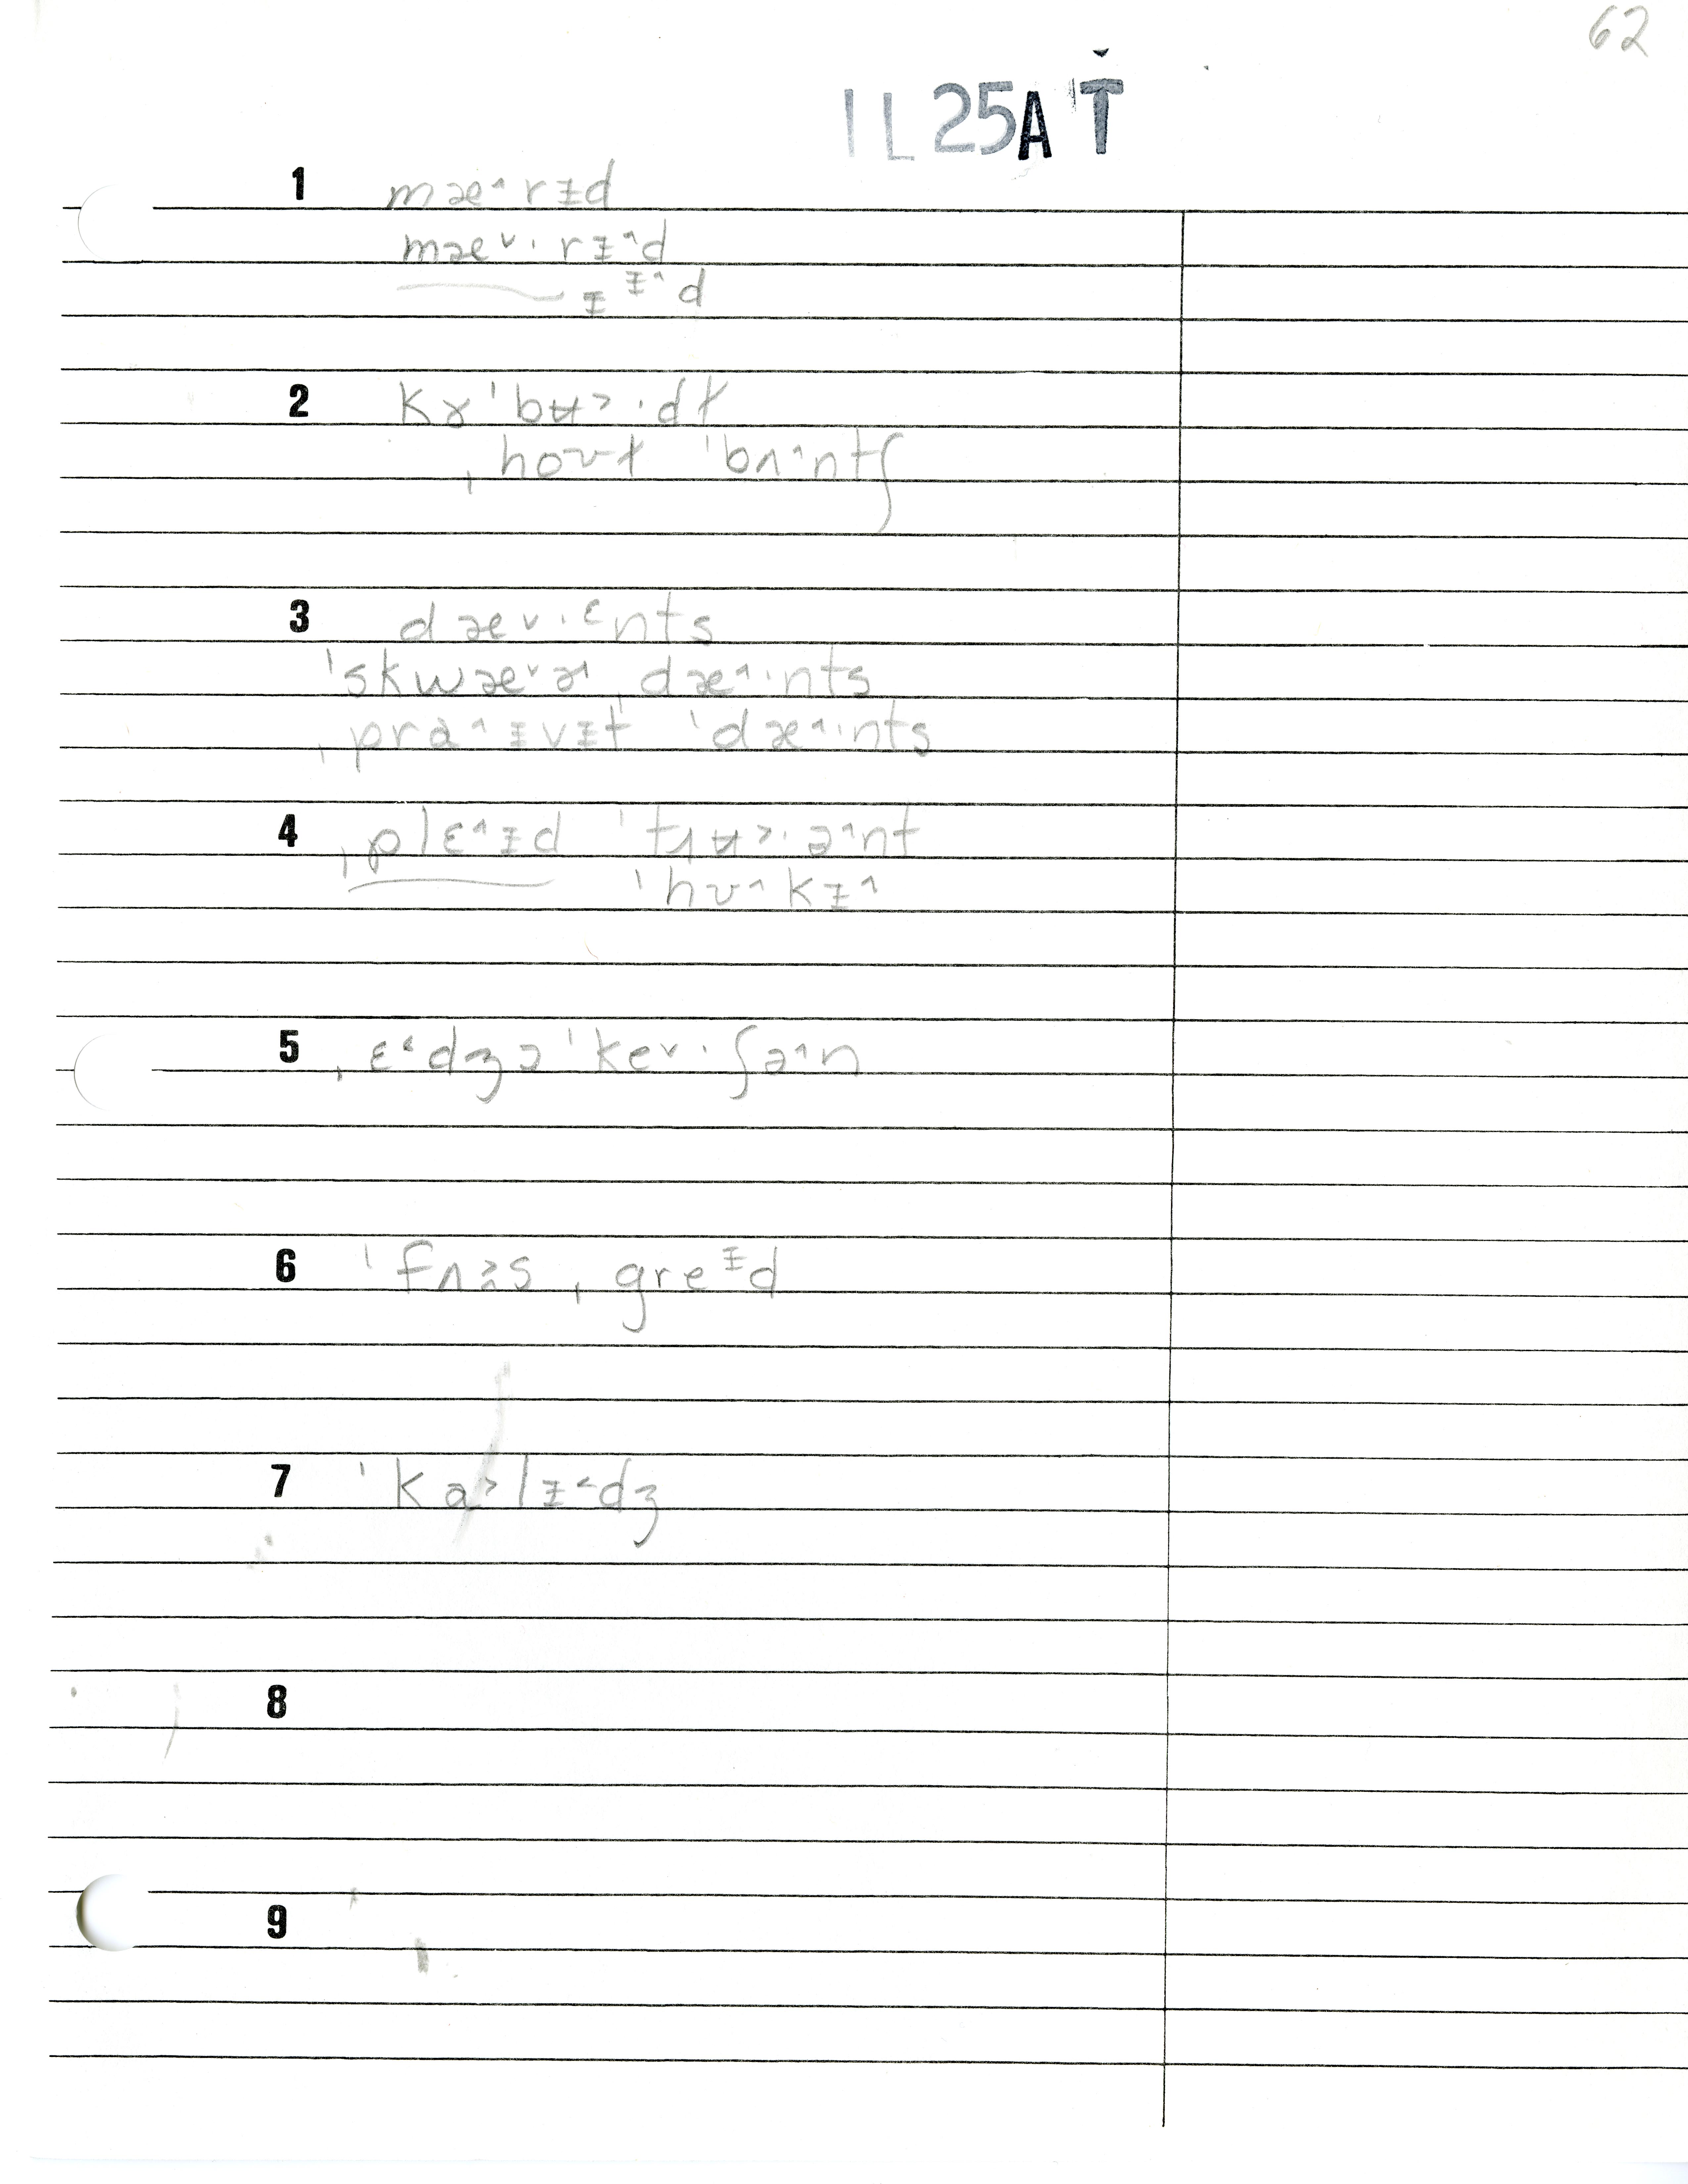 62
IL 25A 'Ť
1 mæ^rɪd
mæ˅·rɪ^d
ɪ ɪ^d
2 kɤ'bʉ>·dɫ
ˌhoʊɫ 'bʌ^ntʃ
3 dæ˅·ɛnts
'skwæ˅ɚ ˌdæ^·nts
ˌpra^ɪvɪt 'dæ^·nts
4 ˌplɛ^ɪd 'tɹʉ>·ə^nt
'hʊ^kɪ^
5 ˌɛ<dʒə'ke˅·ʃə^n
6 'fɹ̩s ˌgreᶦd
7 'ka>lɪ<dʒ
8
9